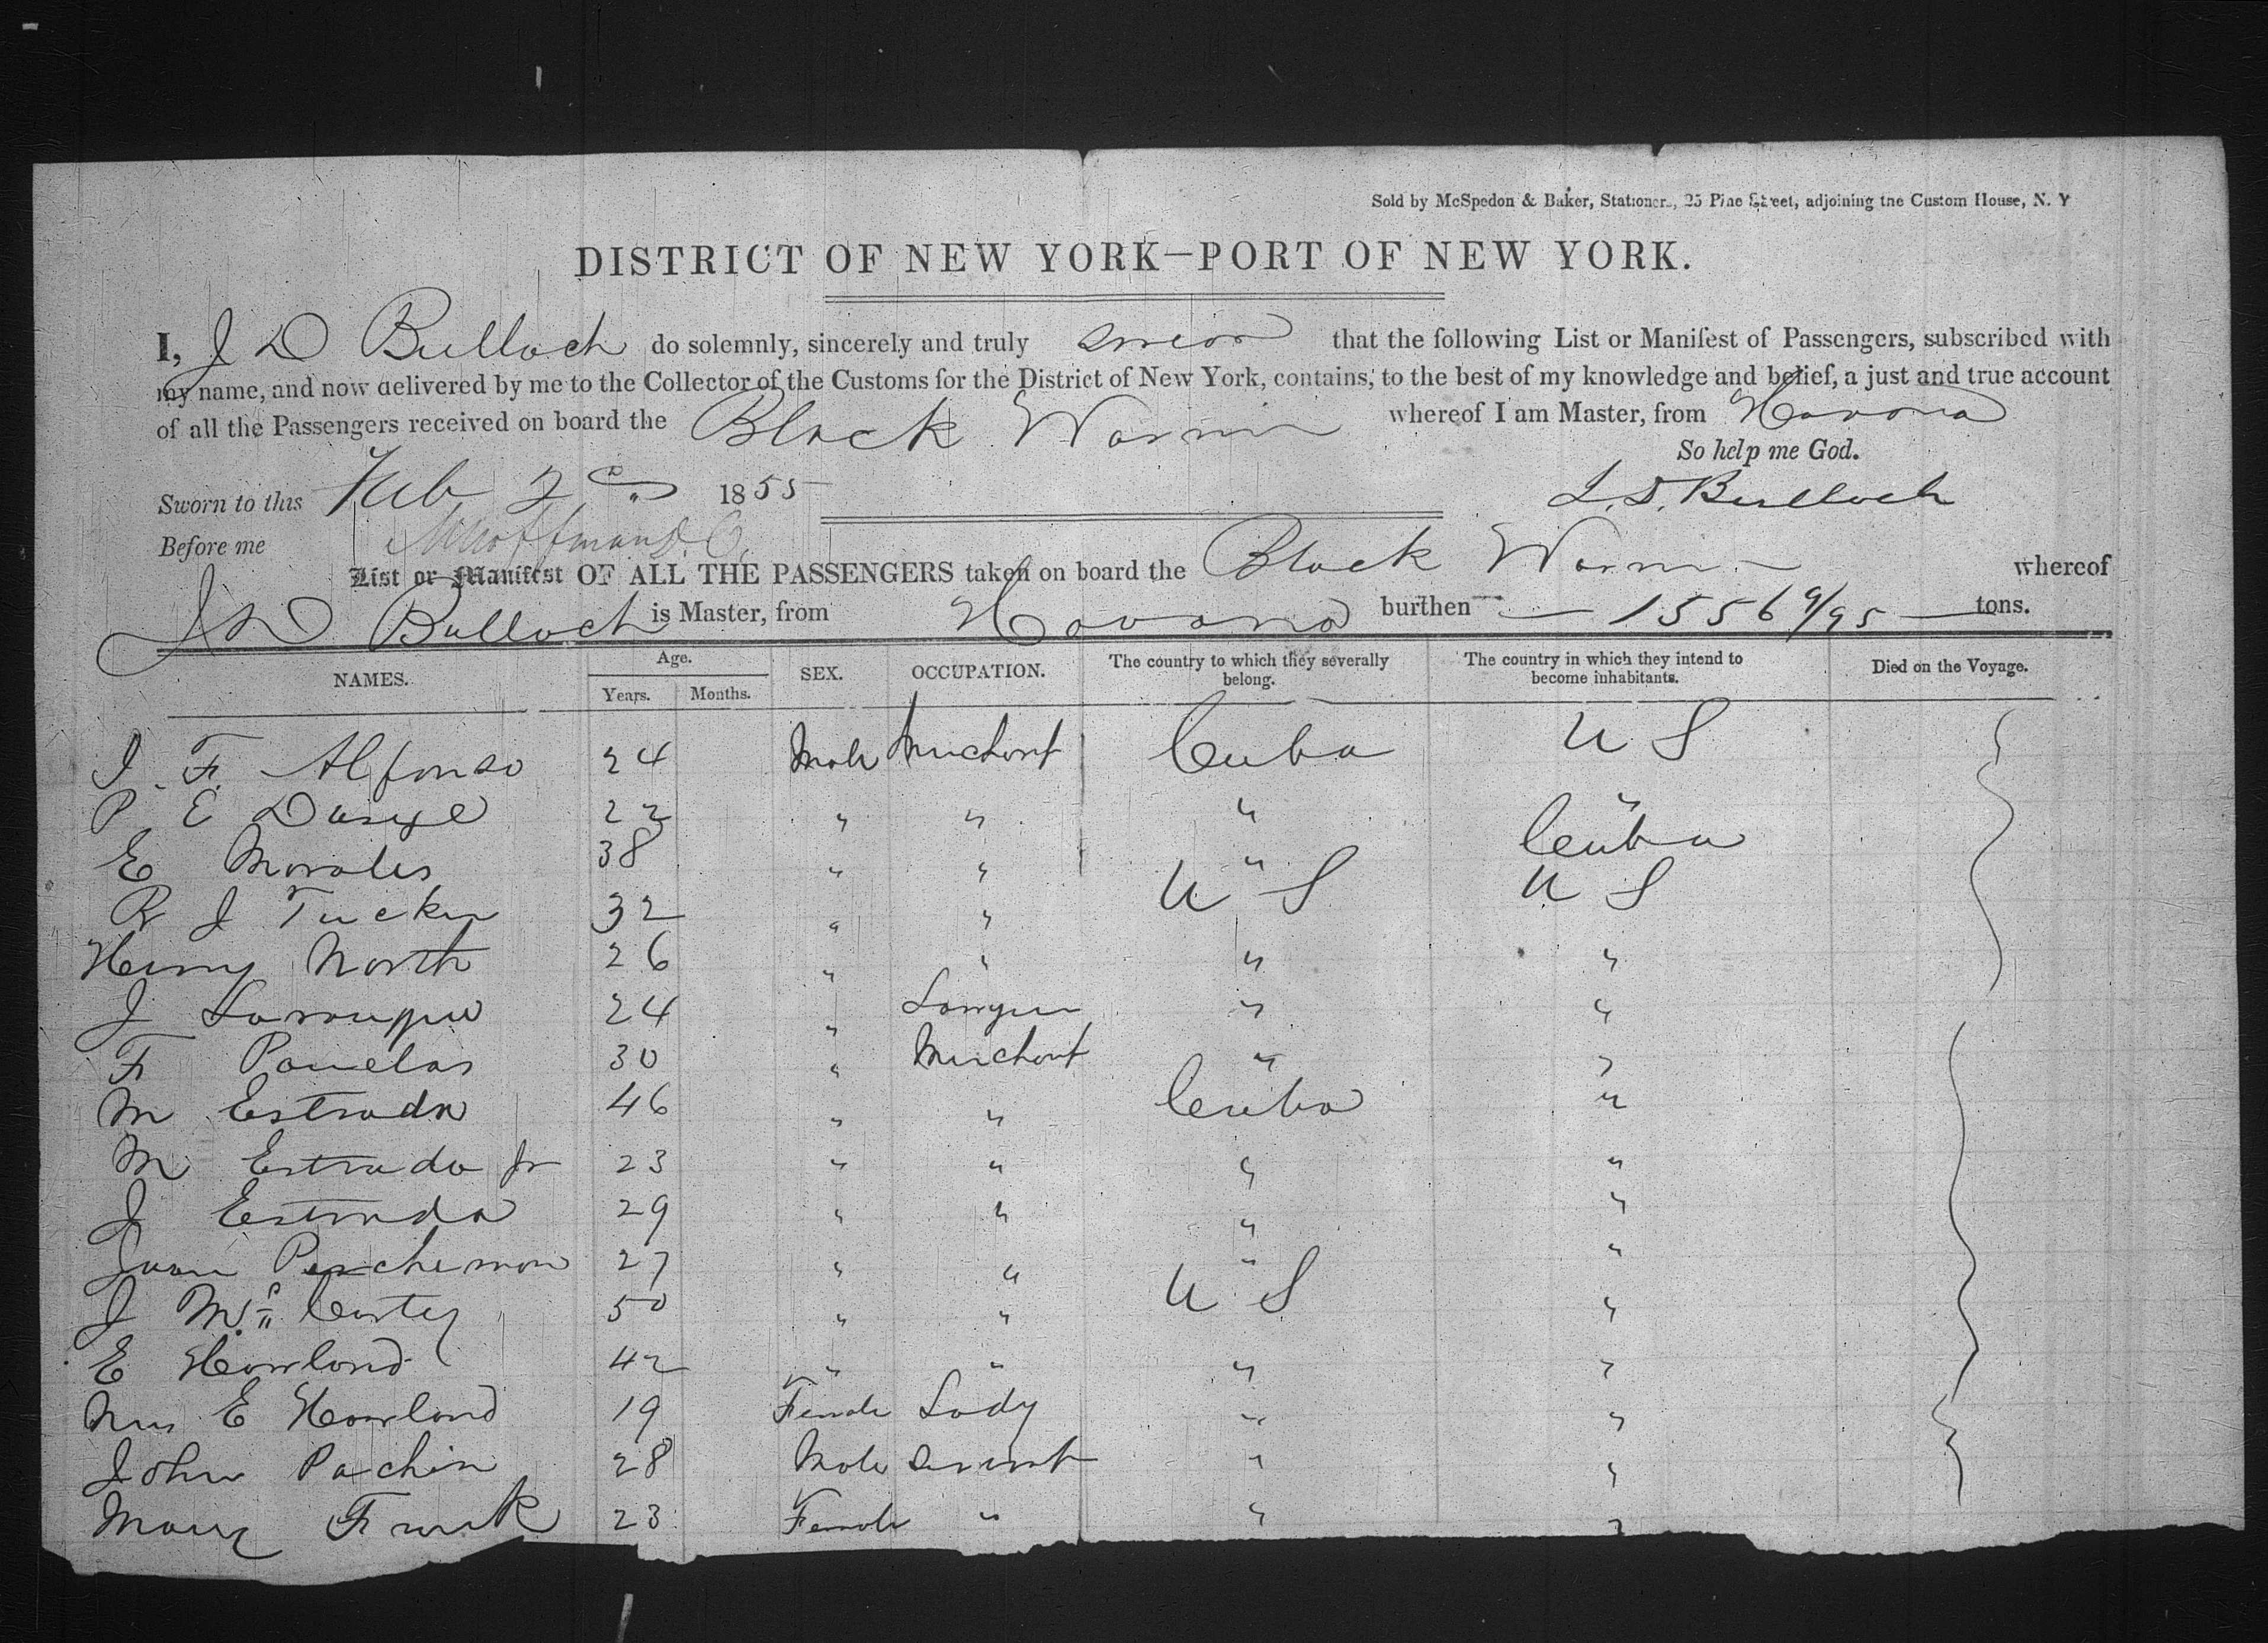 Sold by McSpedon & Baker, Stationers, 25 Pine Street, adjoining the Custom House, N. Y
DISTRICT OF NEW YORK—PORT OF NEW YORK.
I, J D Bulloch do solemnly, sincerely and truly swear that the following List or Manifest of Passengers, subscribed with
my name, and now delivered by me to the Collector of the Customs for the District of New York, contains, to the best of my knowledge and belief, a just and true account
of all the Passengers received on board the Black Warrior whereof I am Master, from Havana
So help me God.
Sworn to this Feb 2 1855
J. D. Bulloch
Before me
List or Manifest OF ALL THE PASSENGERS taken on board the Black Warrior whereof
J D Bulloch is Master, from Havana burthen 1556 9/95 tons.
NAMES. Age. Years. Months. SEX. OCCUPATION. The country to which they severally belong. The country in which they intend to become inhabitants. Died on the Voyage.
J. F. Alfonso 24 Male Merchant Cuba U S
P E 22 " " " "
E Morales 38 " " " Cuba
R J Tucker 32 " " U S U S
Henry North 26 " " " "
J 24 " Lawyer " "
F 30 " Merchant " "
M Estrada 46 " " Cuba "
M Estrada Jr 23 " " " "
J Estrada 29 " " " "
Juan 27 " " " "
J 50 " " U S "
E Howland 42 " " " "
Mrs E Howland 19 Female Lady " "
John Pachin 28 Male Servant " "
Mary Frank 23 Female " " "